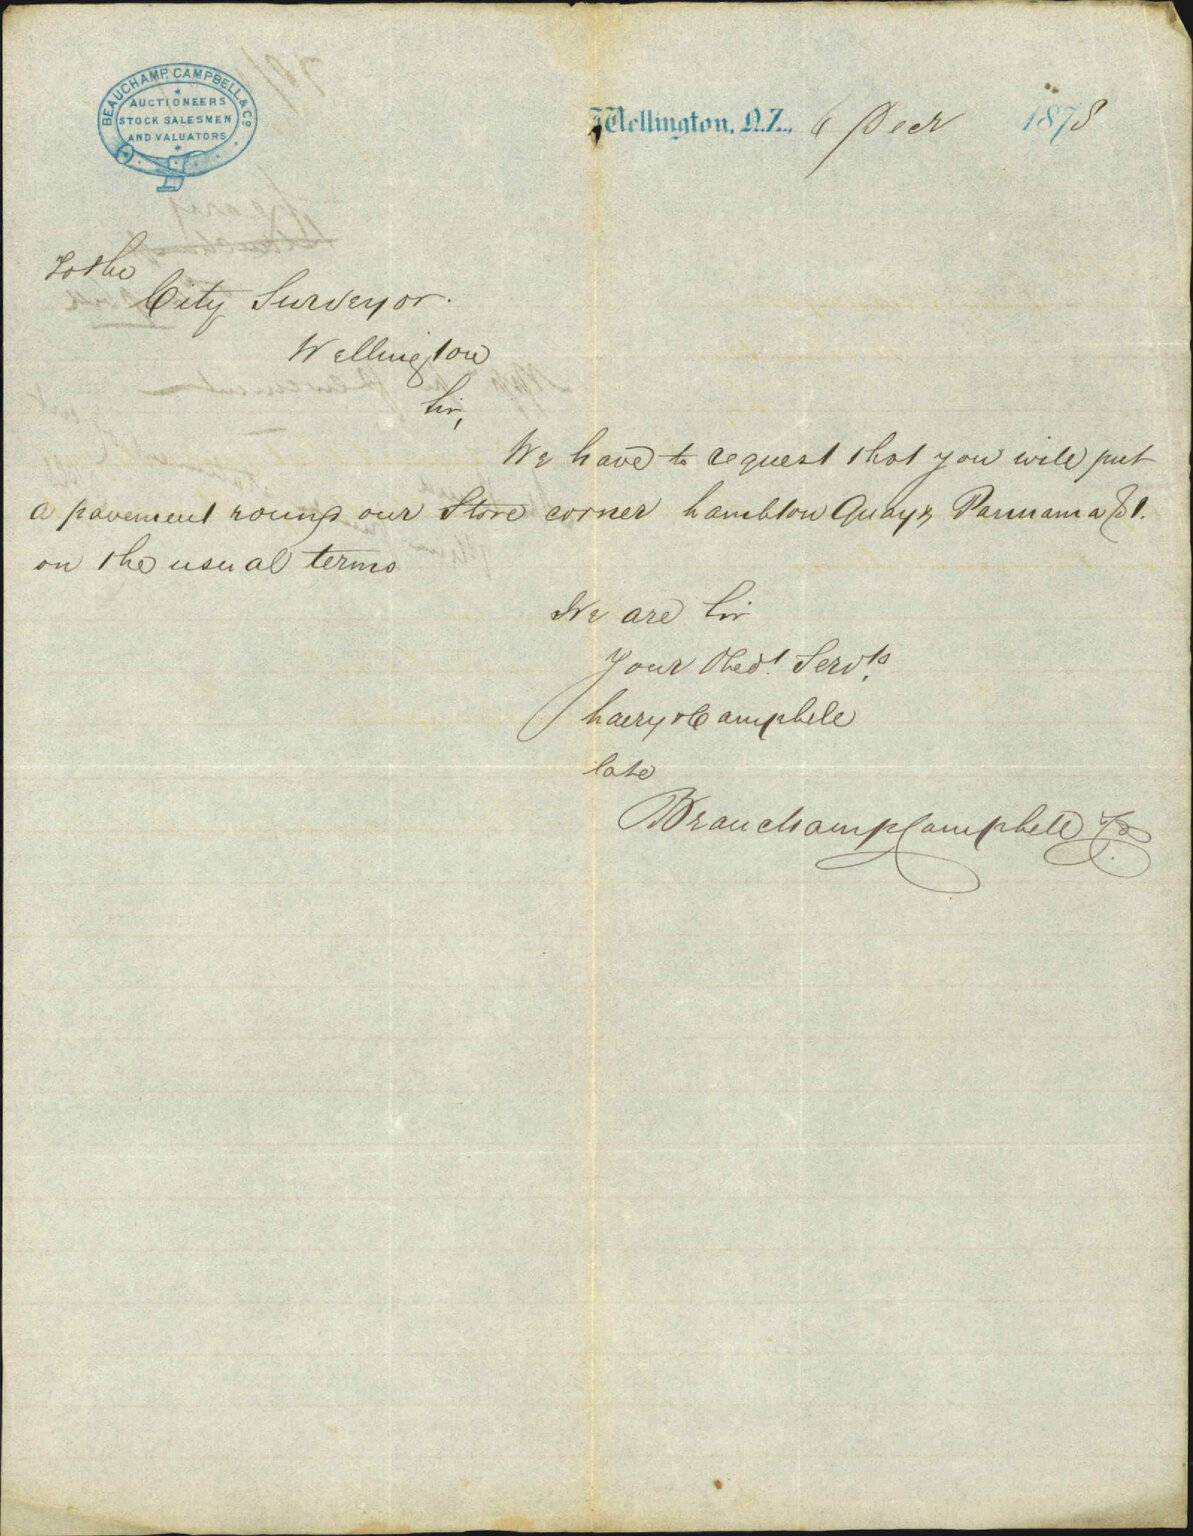 BEAUCHAMP, CAMPBELL & Co
AUCTIONEERS
STOCK SALESMEN
AND VALUATORS
Wellington, N.Z., 6 Decr 1878
To the
City Surveyor.
Wellington
Sir,
We have to request that you will put
a pavement round our Store corner Lambton Quay & Pannama St.
on the usual terms
We are Sir
Your Obedt. Servts.
Campbell
late
Beauchamp Campbell & Co